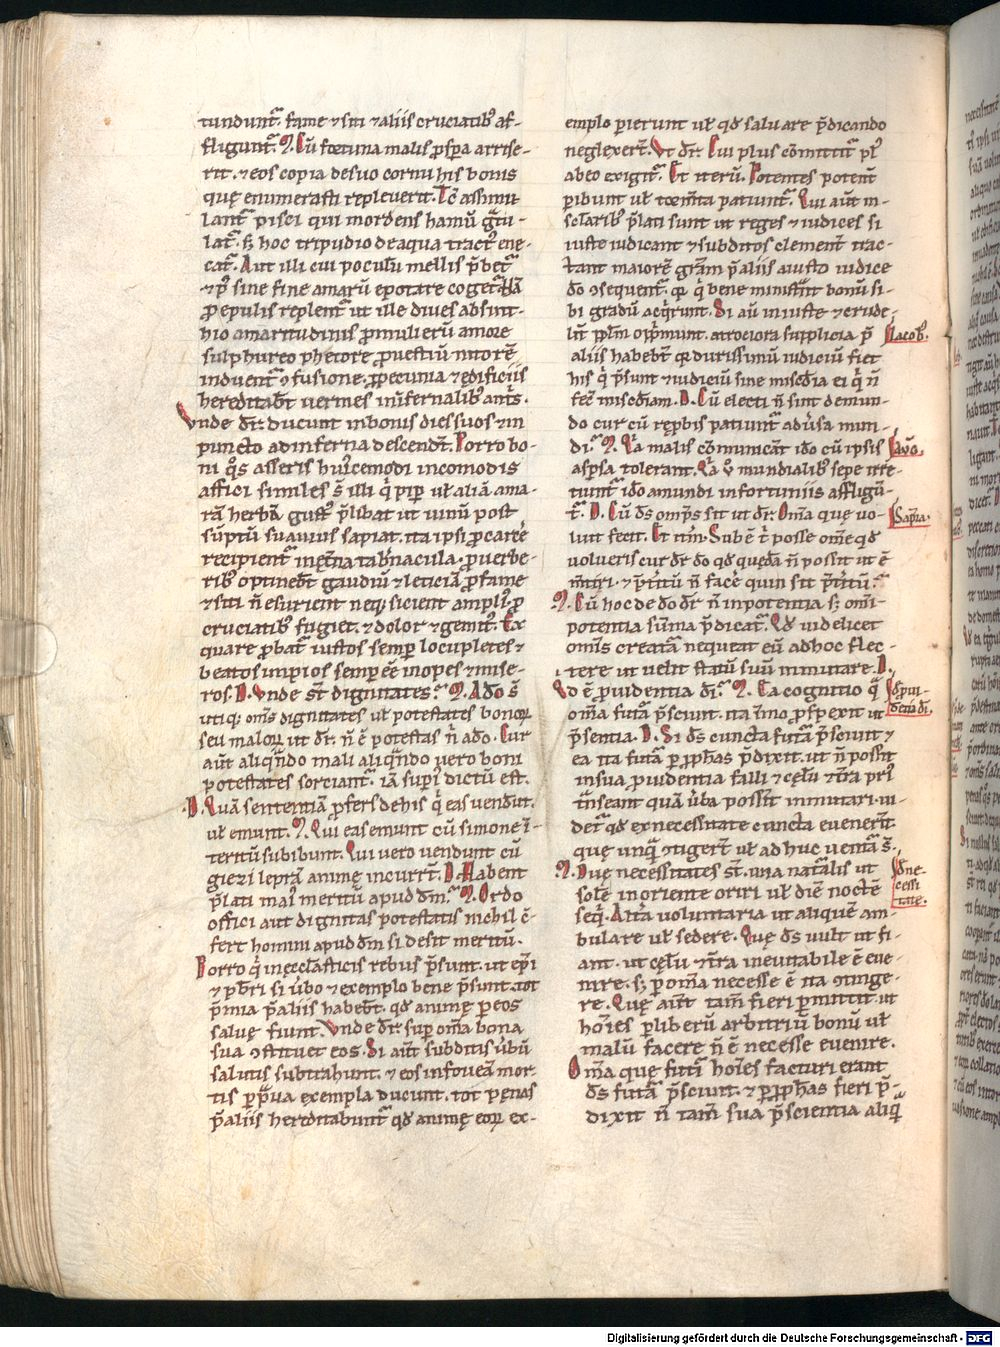 tundunt᷑. fame ⁊ siti ⁊ aliis cruciatibꝰ af-
fligunt᷑. M. Cū fortuna malis ꝓspa arrise-
rit. ⁊ eos copia de suo cornu his bonis
quę enumerasti repleverit. Tē assimi-
lant᷑ pisci qui mordens hamū gratu-
lat᷑. sꝫ hoc tripudio de aqua tractꝰ ene-
cat᷑. Aut illi cui poculū mellis p̄bet᷑
⁊ pꝰ sine fine amarū epotare coget᷑. Nā
ꝓ epulis replent᷑ ut ille dives absint-
hio amaritudinis ꝓ mulierū amore
sulphureo phetore ꝓ vestiū nitorē
induent᷑ ꝯfusione. ꝓ pecunia ⁊ edificiis
hereditabt̄ vermes infernalibꝰ antris.
Unde dr̄. ducunt in bonis dies suos ⁊ in
puncto ad inferna descendt̄. Porro bo-
ni qͦs asseris huꝰcemodi incomodis
affici similes s̄ illi qͥ pip̄ ul̄ aliā ama-
rā herbā gustꝰ p̄libat ut vinū post
sūptū suavius sapiat. ita ipsi ꝓ carcere
recipient᷑ in ęt̄na tab̄nacula. ꝓ verbe-
ribꝰ optinebt̄ gaudiū ⁊ leticiā ꝓ fame
⁊ siti n̄ esurient neqꝫ sicient ampliꝰ ꝓ
cruciatibꝰ fugiet. ⁊ dolor ⁊ gemitꝰ. Ex
quare ꝓbat᷑ iustos semꝑ locupletes ⁊
beatos impios semꝑ eē inopes ⁊ mise-
ros. D. Unde st̄ dignitates. M. A dō s̄
utiqꝫ om̄s dignitates ul̄ potestates bonoꝝ
seu maloꝝ ut dr̄. n̄ ē potestas n̄ a dō. Cur
aūt aliqn̄do mali aliqn̄do vero boni
potestates sorciant᷑. iā supiꝰ dictū est.
D. Quā sententiā ꝓfers de his qͥ eas vendūt.
ul̄ emunt. M. Qui eas emunt cū simone ī-
teritū subibunt. Qui vero vendunt cū
giezi leprā animę incurrt̄. D. Habent
p̄lati maiꝰ meritū apud dm̄. M. Ordo
offici aut dignitas potestatis nichil ꝯ-
fert homini apud dm̄ si desit meritū.
Porro qͥ in ęcclasticis rebus p̄sunt. ut ep̄i
⁊ pb̄ri si v̄bo ⁊ exemplo bene p̄sunt. tot
p̄mia p̄ aliis habebt̄. qd̄ animę ꝑ eos
salvę fiunt. Unde dr̄. suꝑ om̄a bona
sua ꝯstituet eos. Si aūt subditis v̄bū
salutis subtrahunt. ⁊ eos in foveā mor-
tis ꝑ prava exempla ducunt. tot penas
p̄ aliis hereditabunt᷑ qd̄ animę eoꝝ ex-
emplo ꝑierunt ul̄ qd̄ salvare p̄dicando
neglexert̄. Ut dr̄. Cui plus cōmittit᷑ plꝰ
ab eo exigit᷑. Et iterū. Potentes potent᷑
peribunt ul̄ torm̄ta patiunt᷑. Qui aūt in
sclaribꝰ p̄lati sunt ut reges ⁊ iudices si
iuste iudicant ⁊ subditos clement᷑ trac-
tant maiorē gr̄am p̄ aliis a iusto iudice
dō ꝯsequent᷑. qꝛ qͥ bene ministt̄ bonū si-
bi gradū acqͥrunt. Si aū iniuste ⁊ crude-
lit᷑ pplm̄ opp̄munt. atrociora supplicia p̄
aliis habebt̄ qꝛ durissimū iudiciū fiet
his qͥ p̄sunt ⁊ iudiciū sine misc̄dia ei qͥ n̄
fec̄ misc̄diam. D. Cū electi n̄ sint de mun-
do cur cū rep̄bis patiunt᷑ adv̄sa mun-
di. M. Qͥa malis cōmunicāt iō cū ipsis
aspa tolerant. Qͥa ꝟ mundialibꝰ sepe irre-
tiunt᷑ iō a mundi infortuniis affligūn-
t᷑. D. Cū ds̄ om̄ps sit ut dr̄. Om̄a quę vo-
luit fecit. Et itm̄. Subē t̄ posse om̄e qd̄
volueris cur dr̄ dō qd̄ quedā n̄ possit ut ē
mtiri. ⁊ p̄titū n̄ face quin sit p̄titū.
M. Cū hoc de dō dr̄ n̄ inpotentia sꝫ om̄i-
potentia sūma p̄dicat᷑. Qd̄ videlicet
om̄is creatā nequeat eū ad hoc flec-
tere ut velit statū suū inmutare. D.
Qd̄ ē ꝓvidentia dī. M. Ea cognitio qͣ
om̄a futᷓa p̄sciunt᷑. ita imo ꝓspexit ut
p̄sentia. D. Si ds̄ cuncta futᷓa p̄sciunt᷑ ⁊
ea ita futᷓa ꝑ ꝓph̄as p̄dixit. ut n̄ possit
in sua ꝓvidentia falli ⁊ cęlū ⁊ tr̄a priꝰ
tn̄seant quā v̄ba possit inmutari. vi-
det᷑ qd̄ ex necessitate cuncta evenert̄.
quę unqͣ ꝯtigert̄ ul̄ ad huc vent᷑a s̄.
M. Duę necessitates st̄. una natᷓalis ut
solē in oriente oriri ul̄ diē noctē
seqͥ. Alt̄a voluntaria ut aliquē am-
bulare ul̄ sedere. Quę ds̄ vult ut fi-
ant. ut cęlū ⁊ tr̄a inevitabile ē eve-
nire. sꝫ p om̄a necesse ē ita ꝯtinge-
re. Quę aūt tam̄ fieri ꝑmittit. ut
hoīes ꝑ liberū arbitriū bonū ul̄
malū facere n̄ ē necesse evenire.
Om̄a quę futᷓi hoīes facturi erant
ds̄ futᷓa p̄sciunt᷑. ⁊ ꝑ ꝓph̄as fieri p̄-
dixit n̄ tam̄ sua p̄scientia aliqͣ
Iacobꝰ.
Augꝰ.
Sapīa.
de ꝓvi-
dētia dī.
de ne-
cessi
tate.
Digitalisierung gefördert durch die Deutsche Forschungsgemeinschaft - DFG